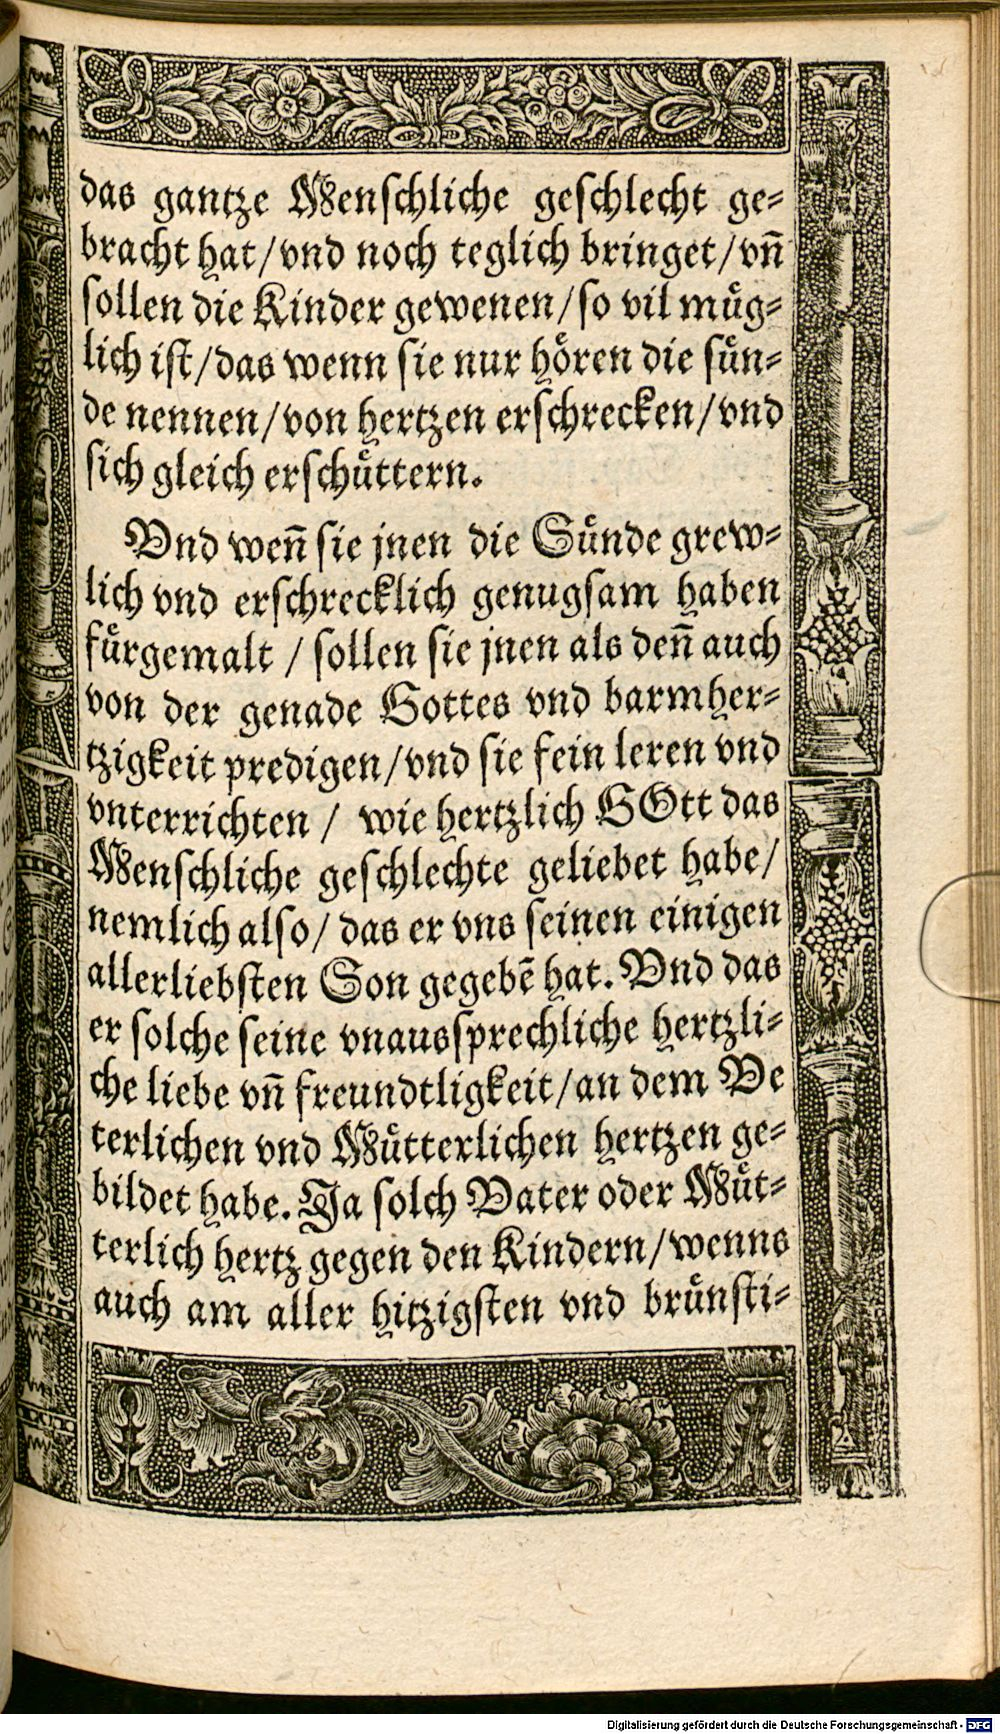 das gantze Menschliche geschlecht ge⸗
bracht hat/vnd noch teglich bringet/vn̄
sollen die Kinder gewenen/so vil muͤg⸗
lich ist/das wenn sie nur hoͤren die suͤn⸗
de nennen/von hertzen erschrecken/vnd
sich gleich erschuͤttern.
Vnd wen̄ sie jnen die Suͤnde grew⸗
lich vnd erschrecklich genugsam haben
fuͤrgemalt / sollen sie jnen als den̄ auch
von der genade Gottes vnd barmher⸗
tzigkeit predigen/vnd sie fein leren vnd
vnterrichten / wie hertzlich GOtt das
Menschliche geschlechte geliebet habe/
nemlich also/ das er vns seinen einigen
allerliebsten Son gegebē hat. Vnd das
er solche seine vnaussprechliche hertzli⸗
che liebe vn̄ freundtligkeit/an dem Ve
terlichen vnd Muͤtterlichen hertzen ge⸗
bildet habe. Ja solch Vater oder Muͤt⸗
terlich hertz gegen den Kindern/wenns
auch am aller hitzigsten vnd bruͤnsti⸗
Digitalisierung gefördert durch die Deutsche Forschungsgemeinschaft - DFG